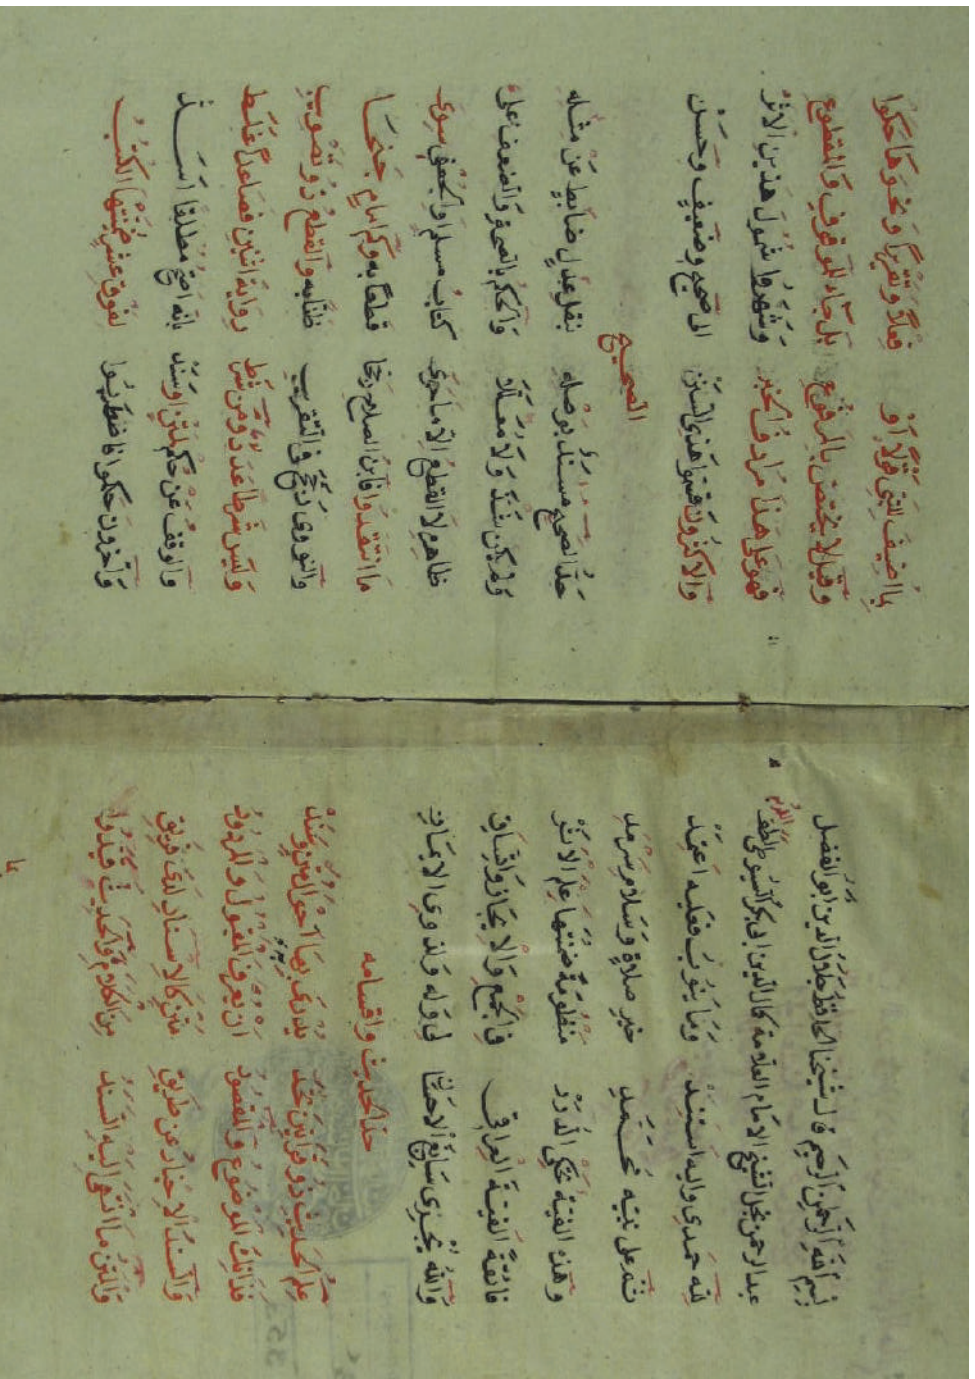 بسم الله الرحمن الرحيم قال شيخنا الحافظ جلال الدين ابو الفضل
عبد الرحمن نجل الشيخ الامام العلامة كمال الدين ابى بكر السيوطى لطف
لله حمدي واليه استند وما ينوب فعليه اعتمد
ثم على نبيه محمد خير صلاة وسلام سرمد
وهذه الفية تحكي الدرر منظومة ضمنتها علم الاثر
فائقة الفية العراقي في الجمع والايجاز واتساق
والله يجري سابغ الاحسان لي وله ولذوي الايمان
حد الحديث واقسامه
علم الحديث ذو قوانين تحد يدرى بها احوال متن وسند
فذانك الموضوع والمقصود ان يعرف المقبول والمردود
والسند الاخبار عن طريق متن كالاسناد لدى فريق
والمتن ما انتهى اليه السند من الكلام والحديث قيدوا
بما اضيف للنبي قولا او فعلا وتقريرا ونحوها حكوا
وقيل لا يختص بالمرفوع بل جاء للموقوف والمقطوع
فهو على هذا مرادف الخبر وشهروا شمول هذين الاثر
والاكثرون قسموا هذي السنن الى صحيح وضعيف وحسن
الصحيح
حد الصحيح مسند بوصله بنقل عدل ضابط عن مثله
ولم يكن شذا ولا معللا والحكم بالصحة والضعف على
ظاهره لا القطع الا ما حوى كتاب مسلم او الجعفي سوى
ما انتقدوا فابن الصلاح رجحا قطعا به وكم امام جنحا
والنووي رجح في التقريب ظنا به والقطع ذو تصويب
وليس شرطا عدد ومن شرط رواية اثنين فصاعدا غلط
والوقف عن حكم لمتن او سند بانه اصح مطلقا اسد
واخرون حكموا فاضطربوا لفوق عشر ضمنتها الكتب